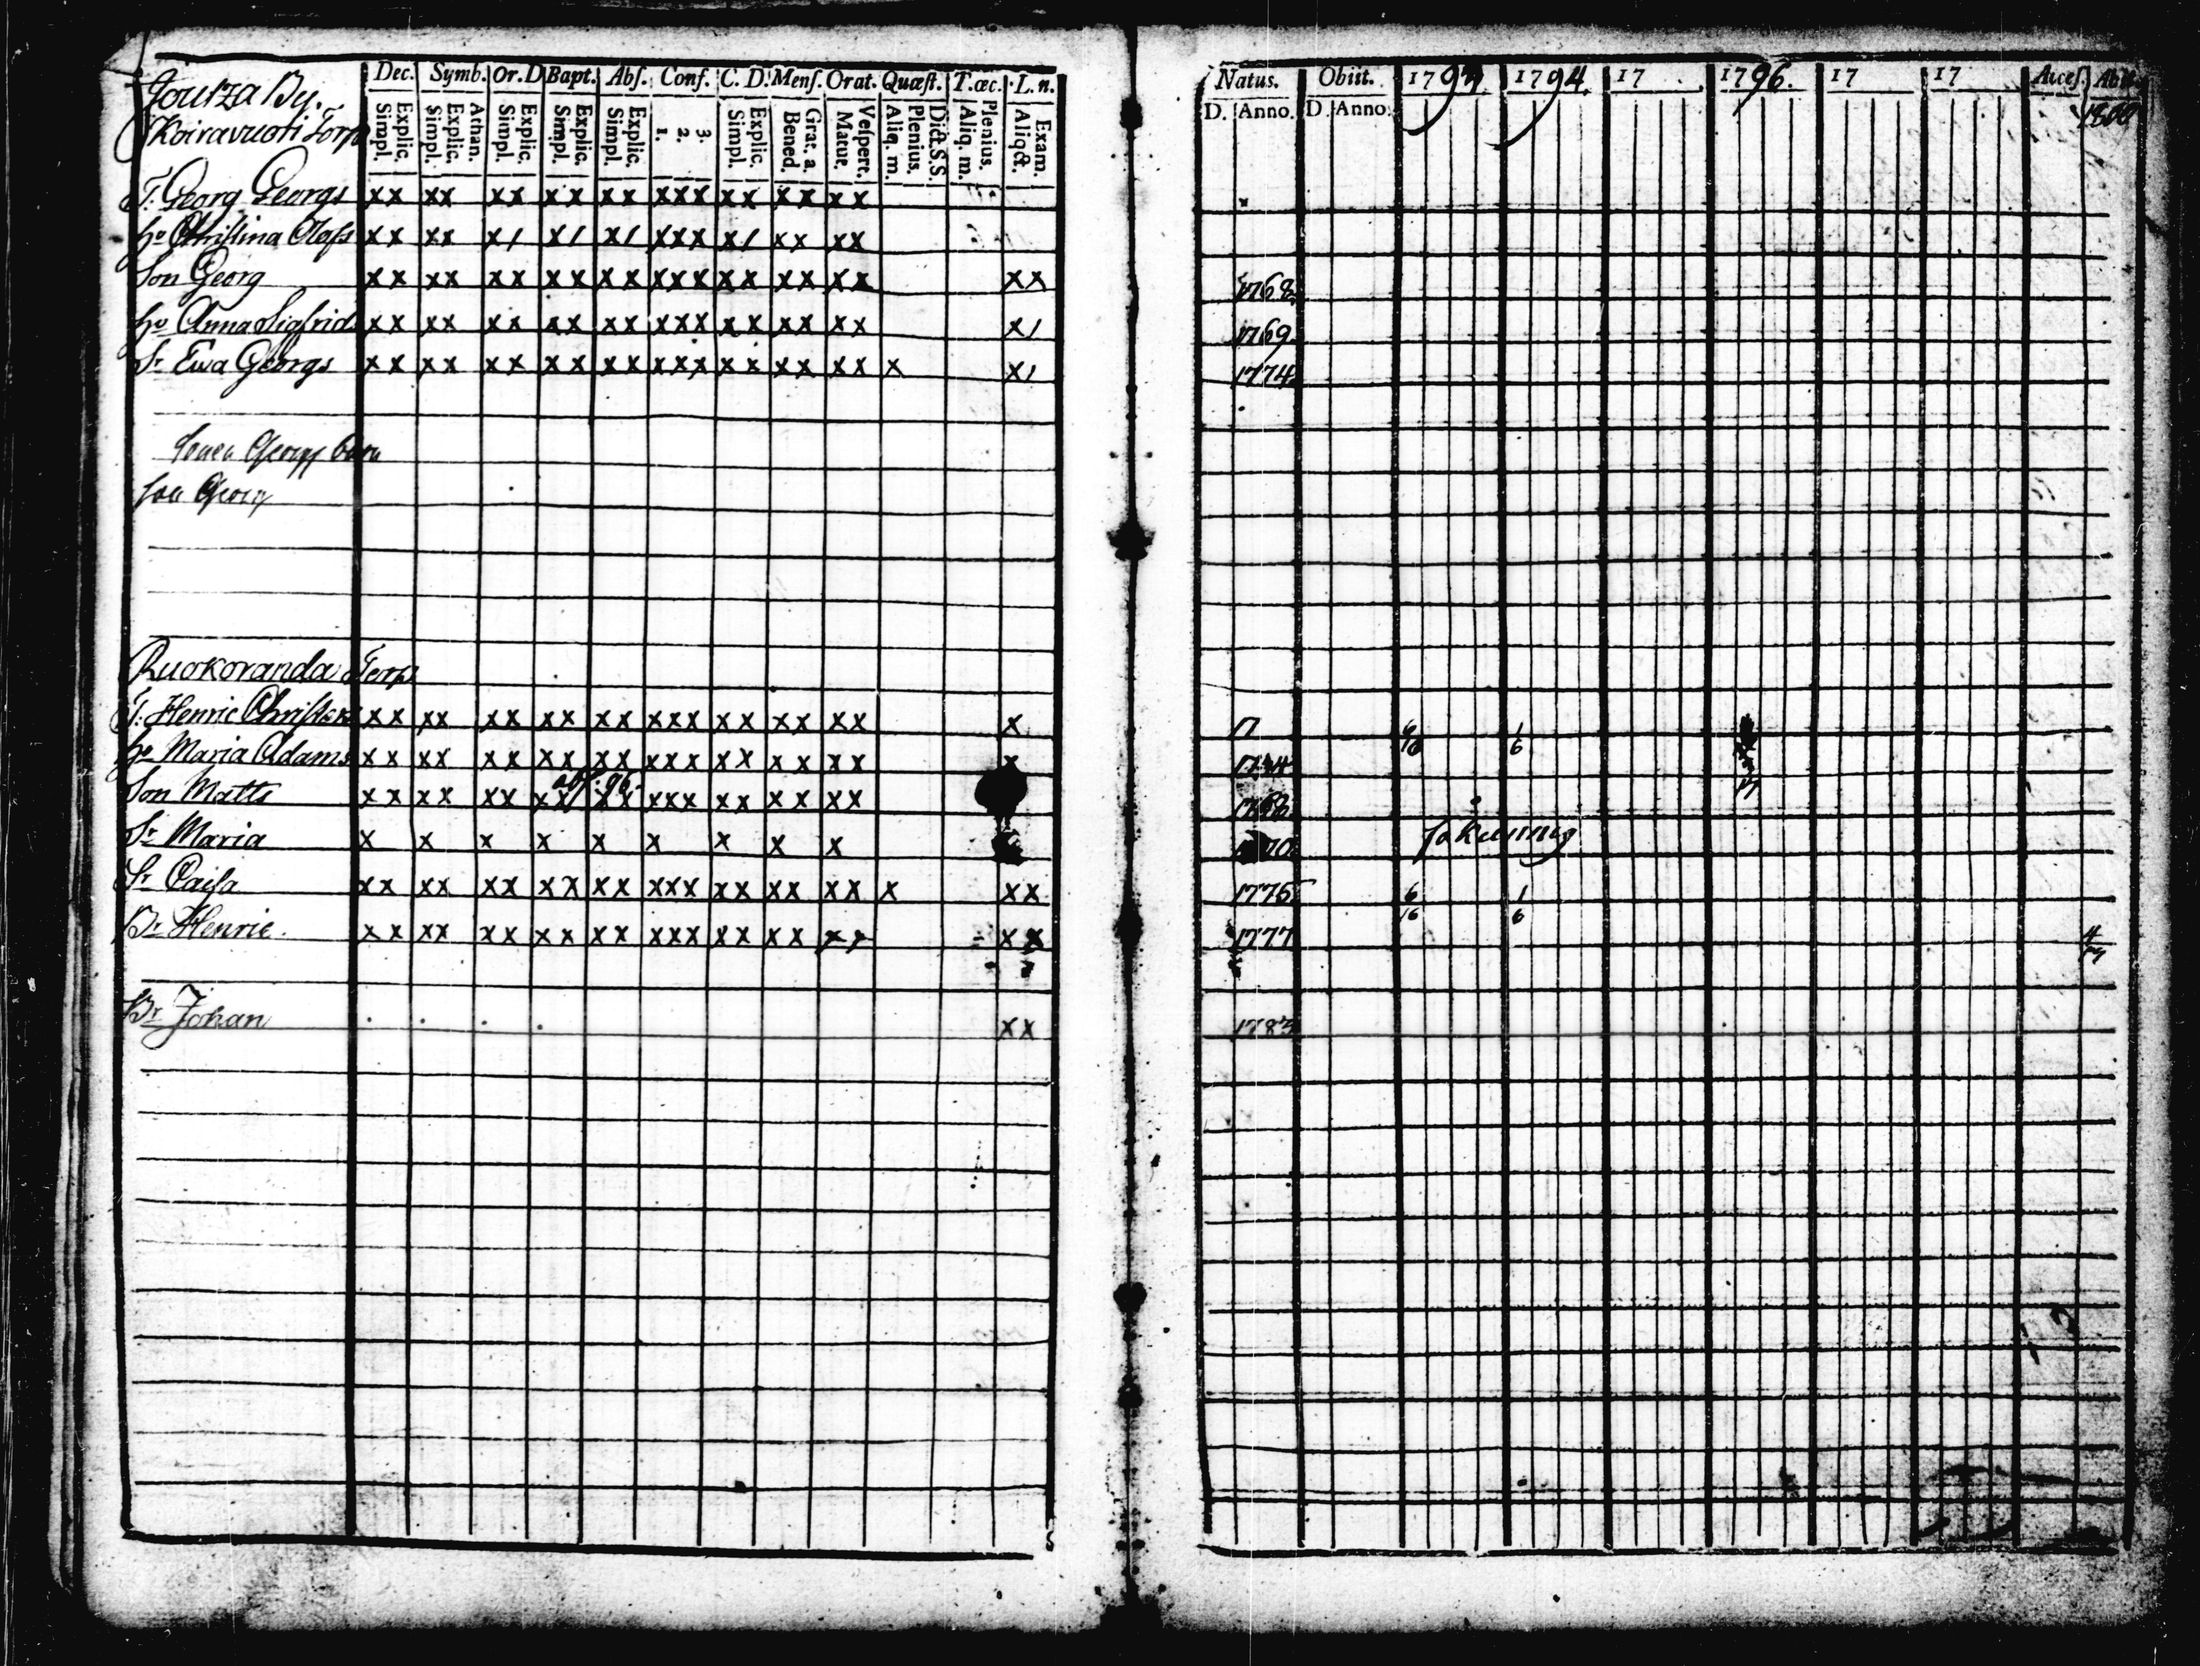 Dec. Symb. Or. D. Bapt. Abſ. Conf. C. D. Menſ. Orat. Quæſt. T. œc. L. n.
Explic. Simpl. Athan. Explic. Simpl. Explic. Simpl. Explic. Simpl. Explic. Simpl. 3. 2. 1. Explic. Simpl. Grat. a. Bened. Veſpert. Matut. Dict. S.S. Plenius. Aliq. m. Plenius. Aliq. m. Exam. Aliqđ.
Natus. Obiit. 179 1794. 17 1796. 17 17 Acceſ. Abit
D. Anno. D. Anno. 1800
By.
Koiravuori Torp
T: Georg Georgs xx xx xx xx xx xxx xx xx xx
Hu Christina Clafs xx xx x/ x/ x/ xxx x/ xx xx
Son Georg xx xx xx xx xx xxx xx xx xx xx 1768
Hu Anna Sigfrids xx xx xx xx xx xxx xx xx xx x/ 1769
Sr Ewa Georgs xx xx xx xx xx xxx xx xx xx x x/ 1774
Georgs barn
Son Georg
Ruokoranda Torp
T: Henric Christers xx xx xx xx xx xxx xx xx xx x 17 6/16 1/6
Hu Maria Adams xx xx xx xx xx xxx xx xx xx x
abs. 96.
Son Matts xx xx xx xx xx xxx xx xx xx
Sr Maria x x x x x x x x x
Sr Caisa xx xx xx xx xx xxx xx xx xx x xx 1775 6/16 1/6
Br Henric xx xx xx xx xx xxx xx xx xx xx 1777
Br Johan xx 1783